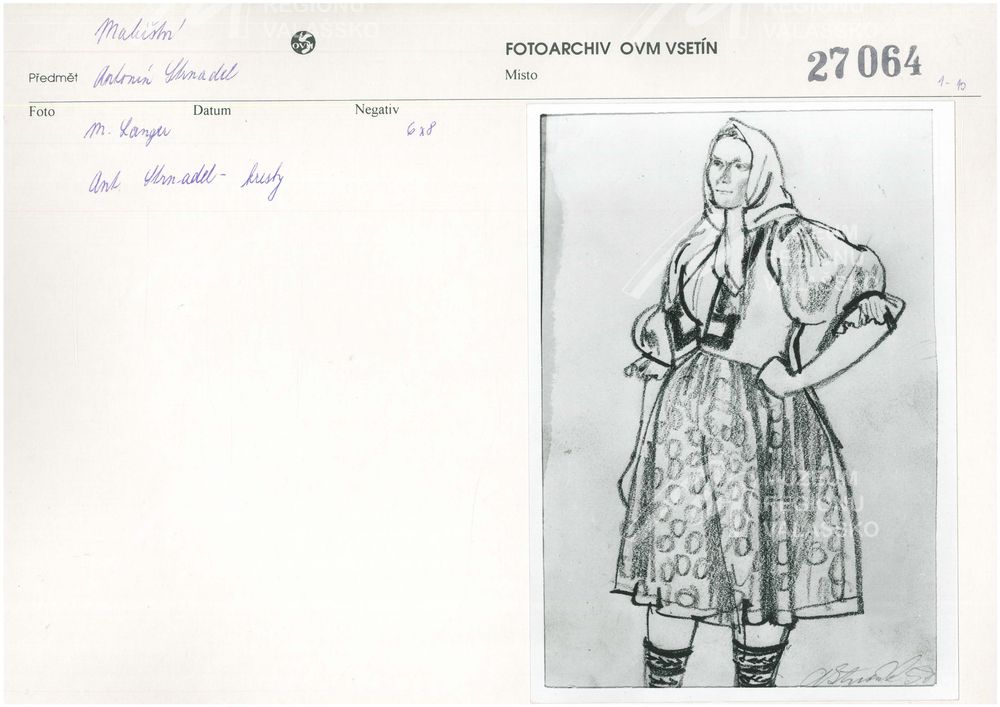 REGIONU
VALAŠSKO
REGIONU
VALAŠSKO
OVM
FOTOARCHIV OVM VSETÍN
27064
1-10
Předmět Antonín Strnadel
Místo
Foto Datum Negativ
M. Langer 6x8
Ant. Strnadel - kresby
MUZEUM
REGIONU
VALAŠSKO
MUZEUM
REGIONU
VALAŠSKO